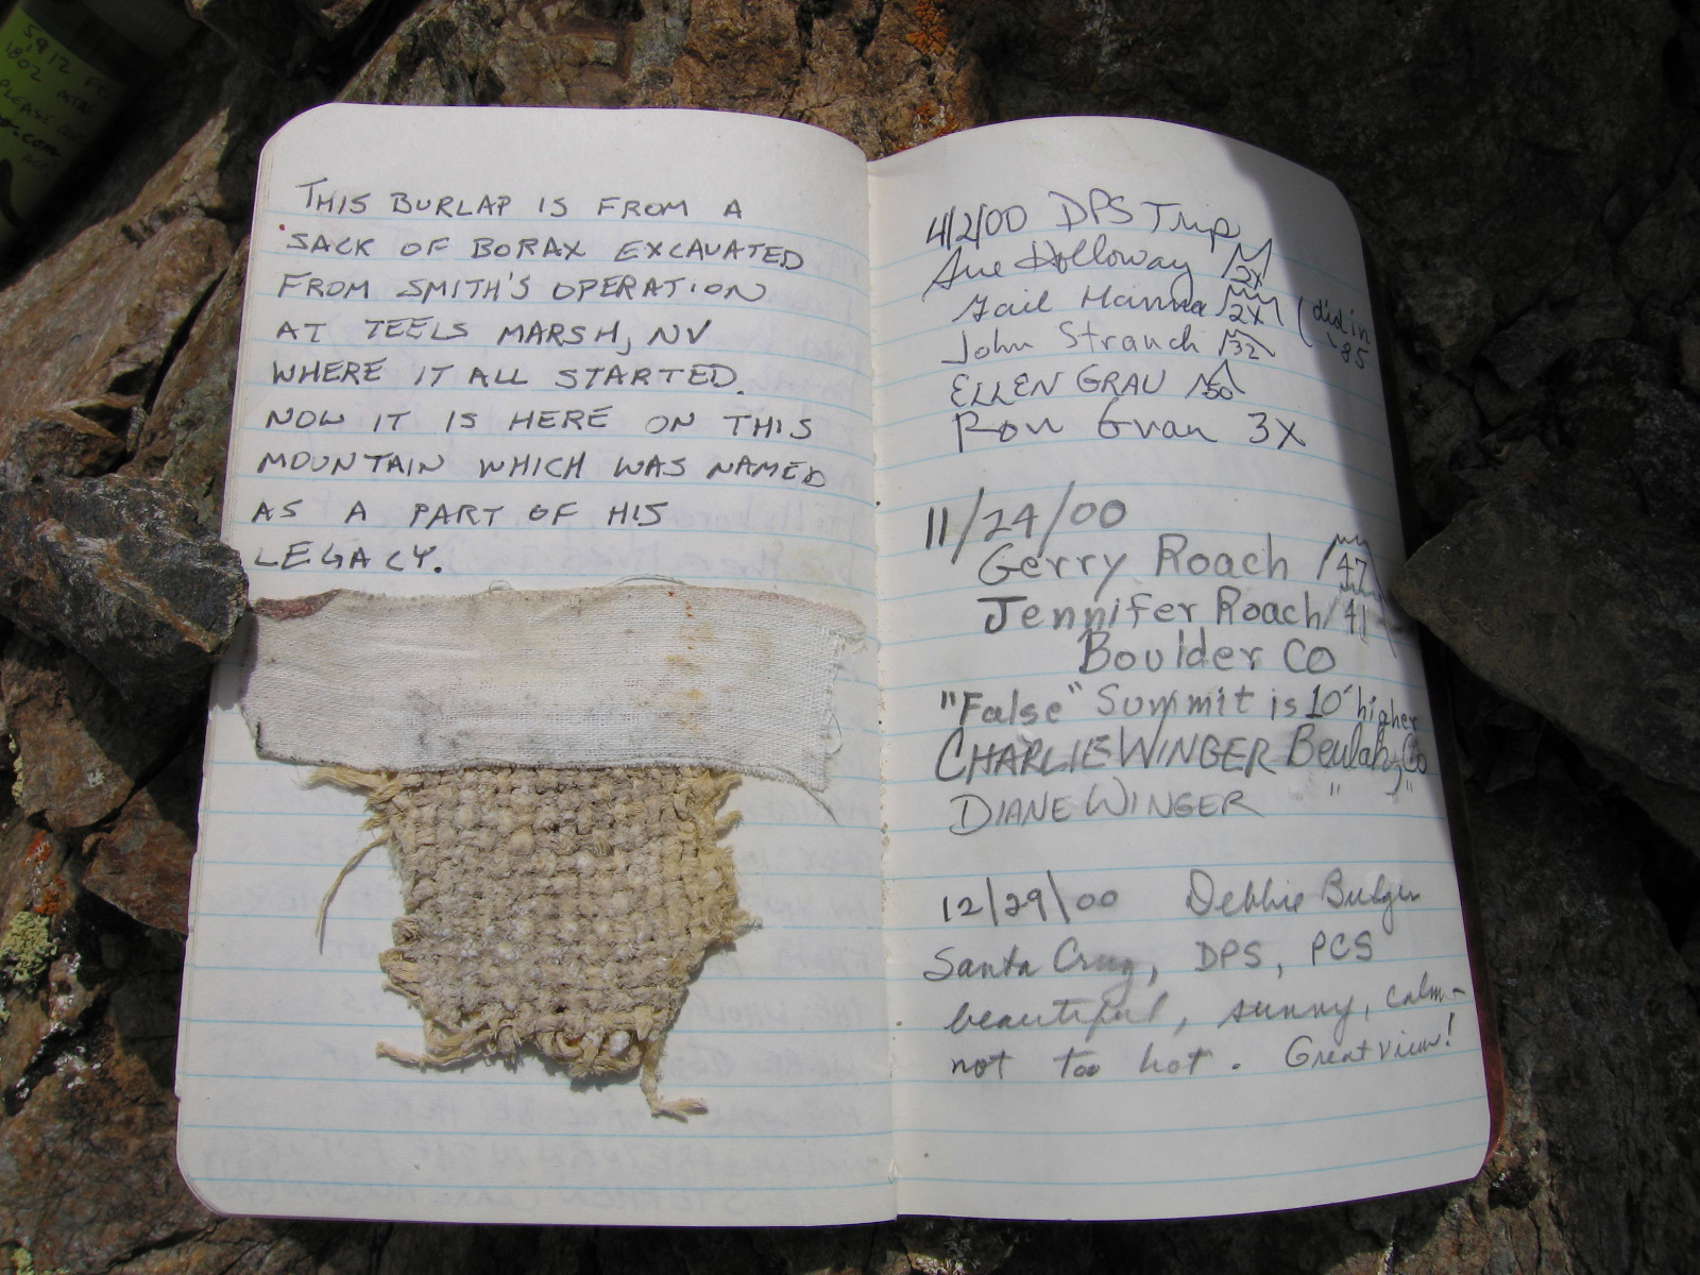 5912
1802
PLEASE
THIS BURLAP IS FROM A
SACK OF BORAX EXCAVATED
FROM SMITH'S OPERATION
AT TEELS MARSH, NV
WHERE IT ALL STARTED.
NOW IT IS HERE ON THIS
MOUNTAIN WHICH WAS NAMED
AS A PART OF HIS
LEGACY.
4/2/00 DPS Trip
Sue Holloway 2X
Gail Hanna 2X (did in
85
John Strauch 32
ELLEN GRAU 50
Ron Grau 3X
11/24/00
Gerry Roach 47
Jennifer Roach 41
Boulder CO
"False" Summit is 10' higher
CHARLIE WINGER Beulah, Co
DIANE WINGER " "
12/29/00 Debbie Bulger
Santa Cruz, DPS, PCS
beautiful, sunny, calm -
not too hot. Great view!